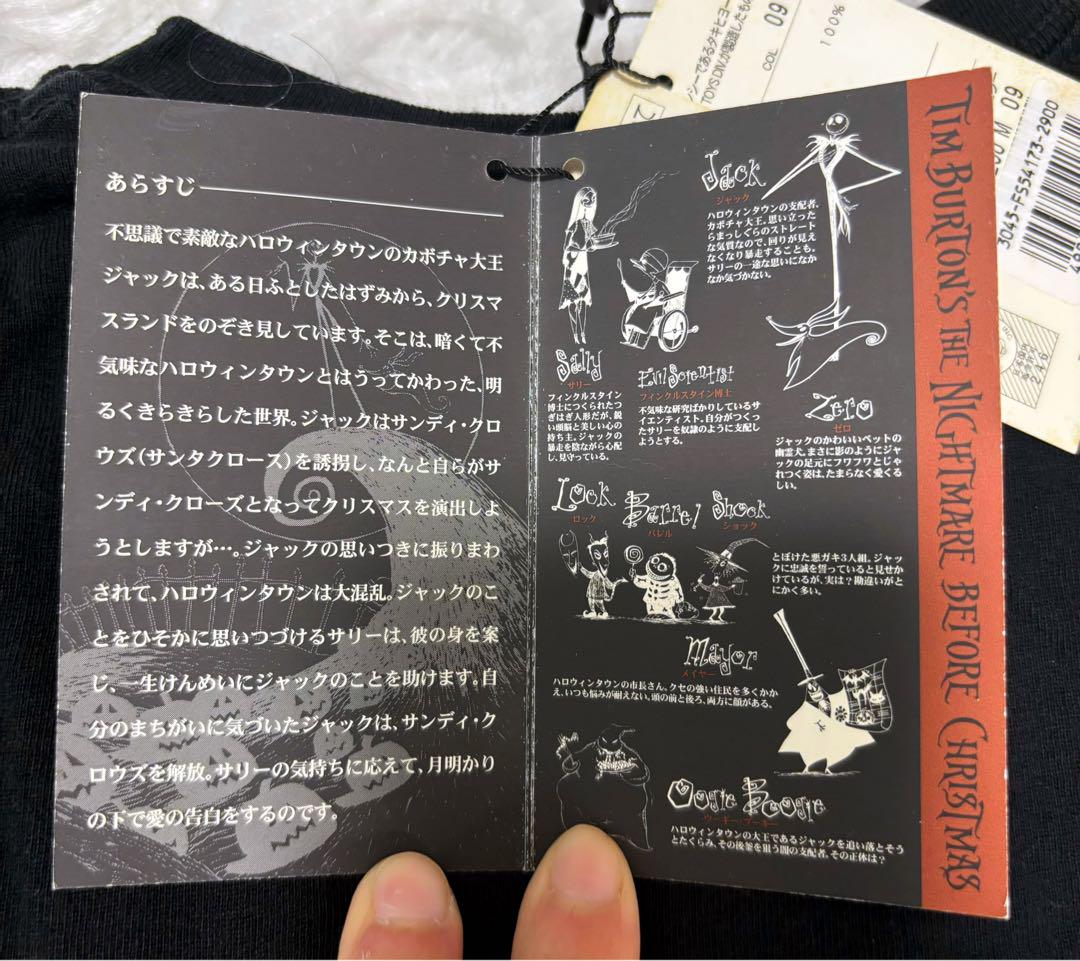 あらすじ
不思議で素敵なハロウィンタウンのカボチャ大王
ジャックは、ある日ふとしたはずみから、クリスマ
スランドをのぞき見しています。そこは、暗くて不
気味なハロウィンタウンとはうってかわった、明
るくきらきらした世界。ジャックはサンディ・クロ
ウズ(サンタクロース)を誘拐し、なんと自らがサ
ンディ・クローズとなってクリスマスを演出しよ
うとしますが…。ジャックの思いつきに振りまわ
されて、ハロウィンタウンは大混乱。ジャックのこ
とをひそかに思いつづけるサリーは、彼の身を案
じ、一生けんめいにジャックのことを助けます。自
分のまちがいに気づいたジャックは、サンディ・ク
ロウズを解放。サリーの気持ちに応えて、月明かり
の下で愛の告白をするのです。
Jack
ジャック
ハロウィンタウンの支配者、
カボチャ大王。思い立った
らまっしぐらのストレート
な気質なので、回りが見え
なくなり暴走することも。
サリーの一途な思いになか
なか気づかない。
Sally
サリー
フィンクルスタイン
博士につくられたつ
ぎはぎ人形だが、鋭
い頭脳と美しい心の
持ち主。ジャックの
暴走を陰ながら心配
し、見守っている。
Evil Scientist
フィンクルスタイン博士
不気味な研究ばかりしているサ
イエンティスト。自分がつくっ
たサリーを奴隷のように支配し
ようとする。
Zero
ゼロ
ジャックのかわいいペットの
幽霊犬。まさに影のようにジャ
ックの足元にフワフワとじゃ
れつく姿は、たまらなく愛くる
しい。
Lock
ロック
Barrel
バレル
Shock
ショック
とぼけた悪ガキ3人組。ジャッ
クに忠誠を誓っていると見せか
けているが、実は?勘違いがと
にかく多い。
Mayor
メイヤー
ハロウィンタウンの市長さん。クセの強い住民を多くかか
え、いつも悩みが耐えない。頭の前と後ろ、両方に顔がある。
Oogie Boogie
ウーギー・ブーギー
ハロウィンタウンの大王であるジャックを追い落とそう
とたくらみ、その後釜を狙う闇の支配者。その正体は?
TIM BURTON'S THE NIGHTMARE BEFORE CHRISTMAS
シーであるタキヒヨー
TOYS DIV.が製造したもの
COL 09
100%
M 09
3045-FS54173-2900